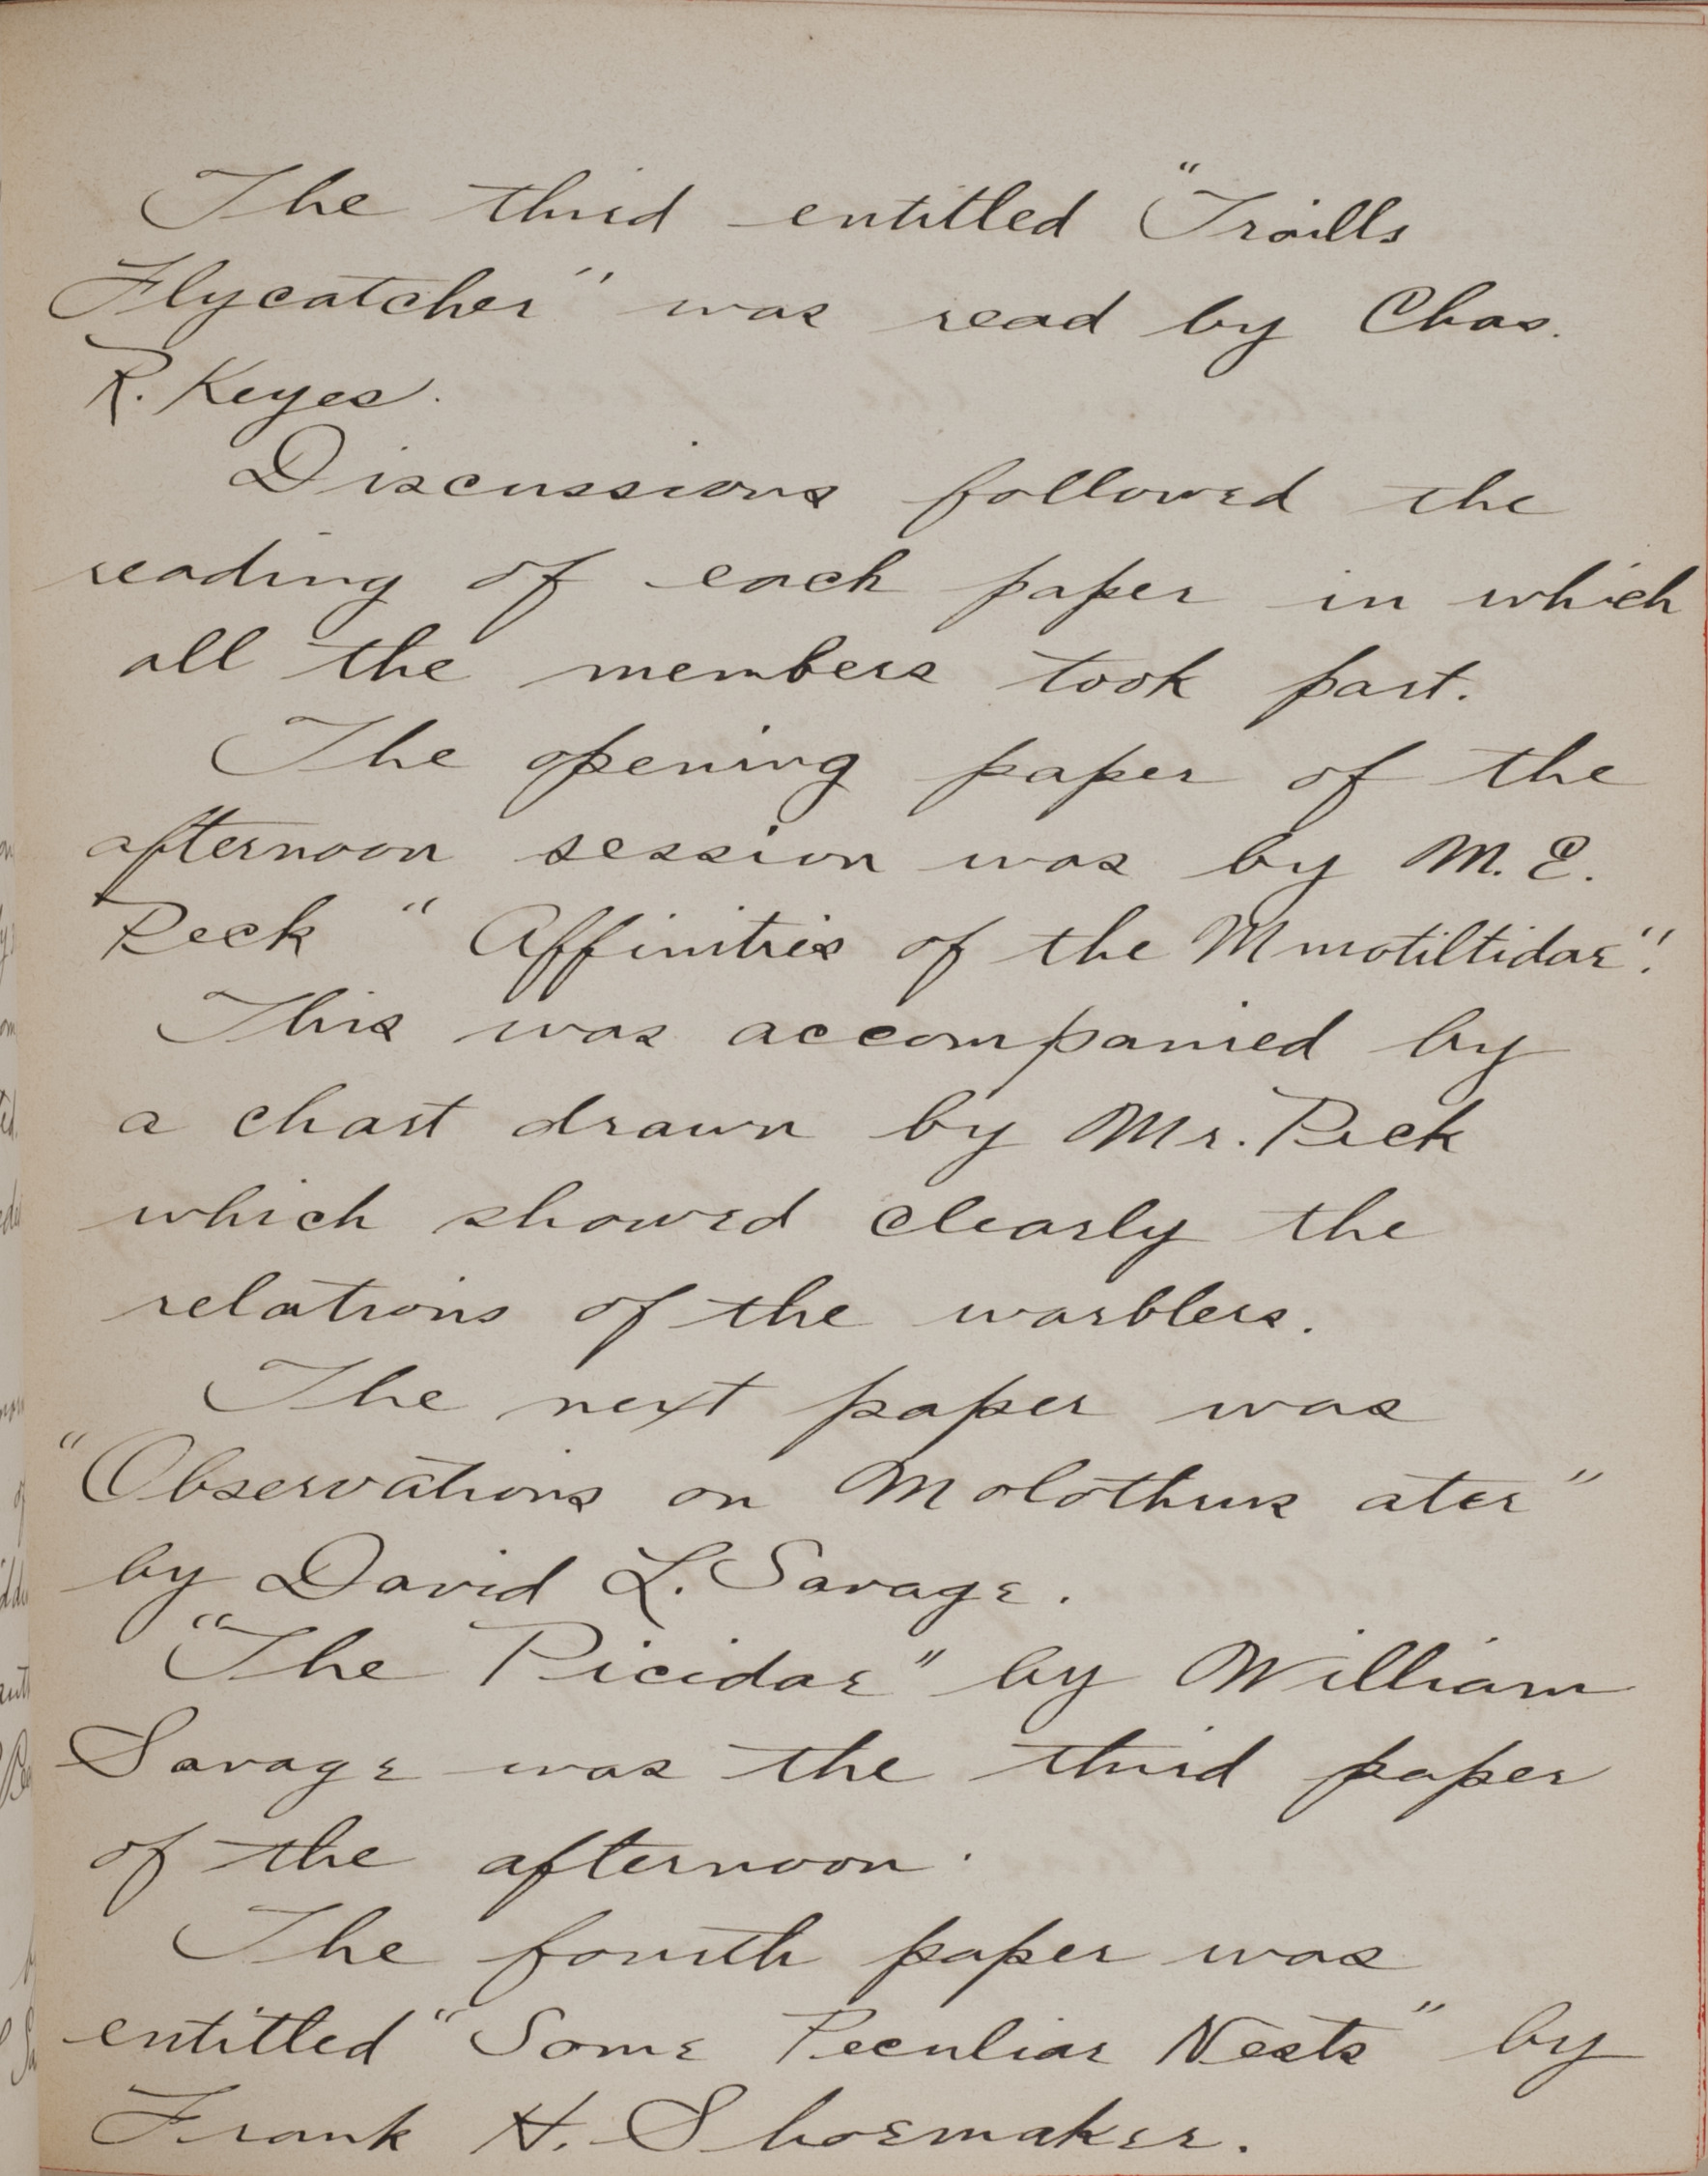 The third entitled "Traills
Flycatcher" was read by Chas.
R. Keyes.
Discussions followed the
reading of each paper in which
all the members took part.
The opening paper of the
afternoon session was by M. E.
Peck "Affinities of the Mmotiltidae".
This was accompanied by
a chart drawn by Mr. Peck
which showed clearly the
relations of the warblers.
The next paper was
"Observations on Molothrus ater"
by David L. Savage.
"The Picidae" by William
Savage was the third paper
of the afternoon.
The fourth paper was
entitled "Some Peculiar Nests" by
Frank H. Shoemaker.